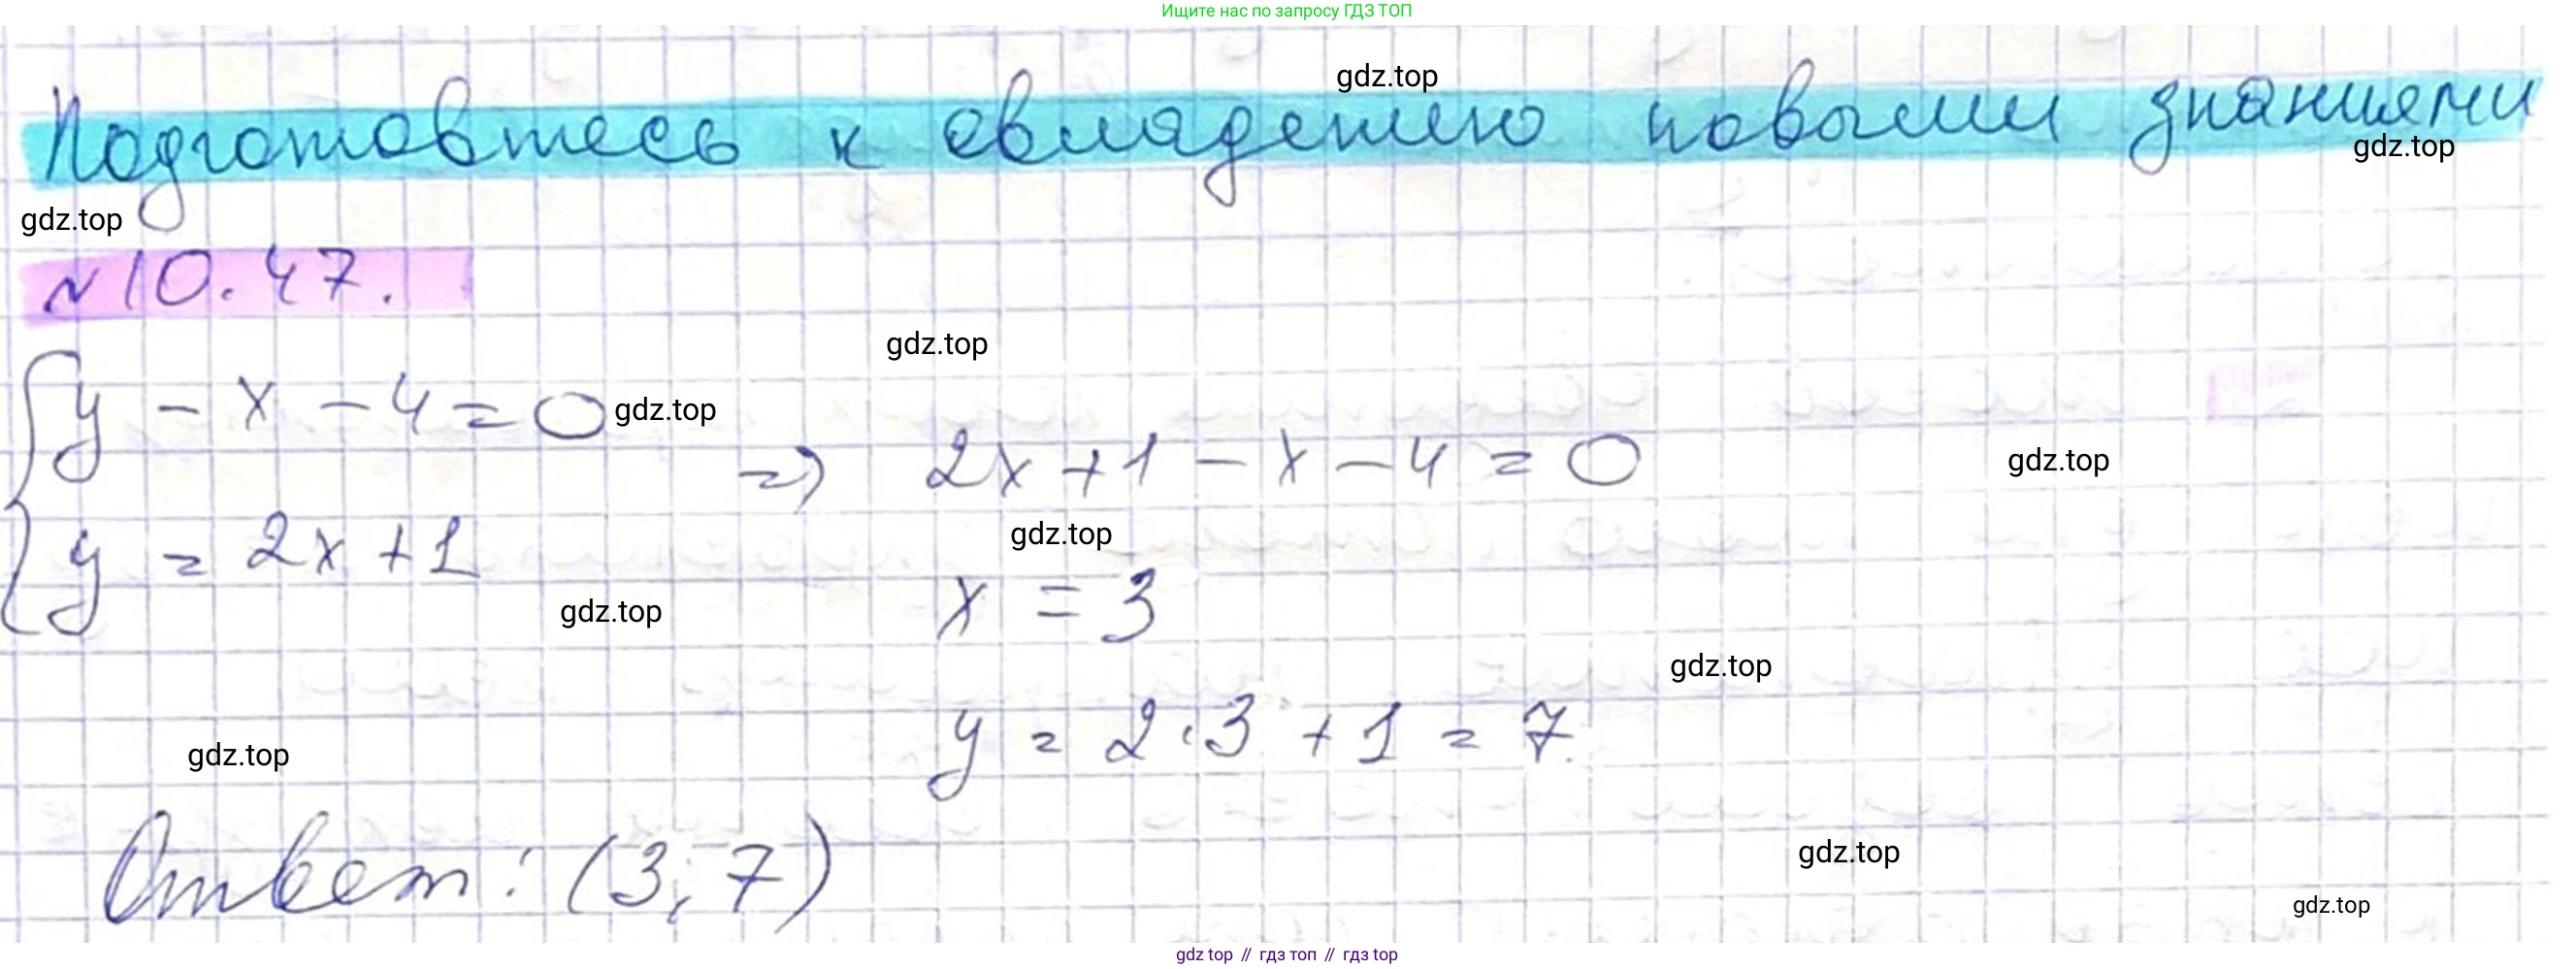 Ищите нас по запросу ГДЗ ТОП
gdz.top
Подготовтесь к овладению новыми знаниями
gdz.top
gdz.top
N 10.47.
gdz.top
{ y - x - 4 = 0 gdz.top
=> 2x + 1 - x - 4 = 0 gdz.top
y = 2x + 1 gdz.top
gdz.top x = 3
gdz.top
y = 2·3 + 1 = 7.
gdz.top
Ответ: (3; 7)
gdz.top
gdz.top
gdz top // гдз топ // гдз top